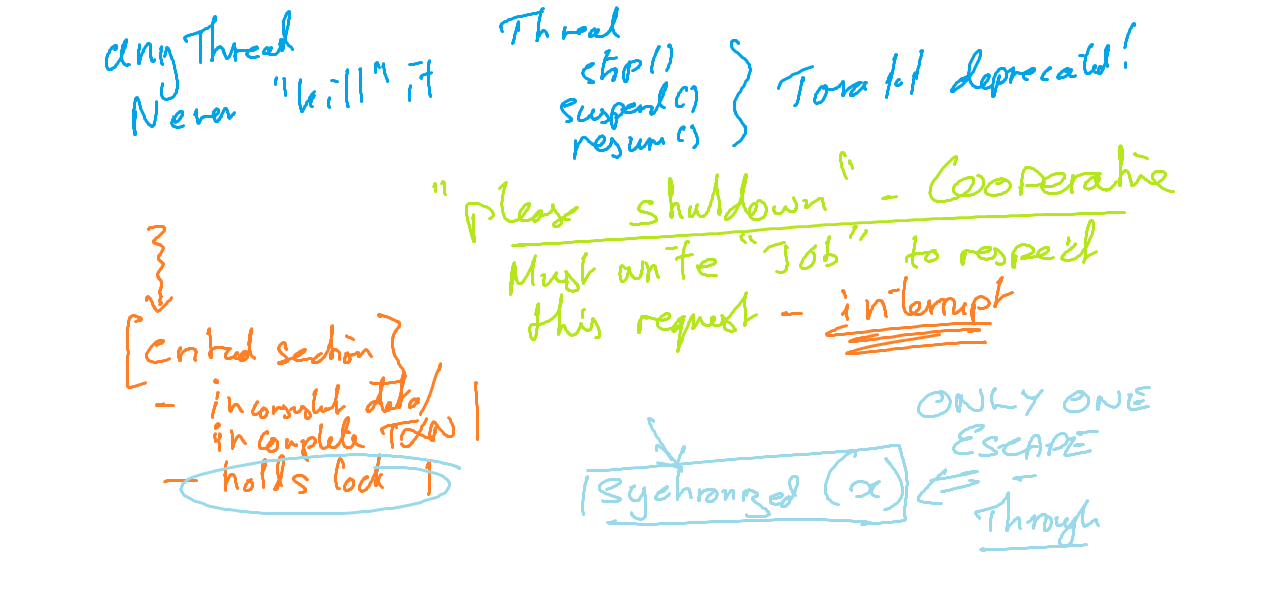 any Thread
Never "kill" it
Thread
stop()
suspend()
resume()
deprecated!
"please shutdown" - Cooperative
Must write "Job" to respect
this request - interrupt
Critical section
- inconsistent data/
incomplete TXN
- holds lock
Sychronized (x)
ONLY ONE
ESCAPE
-
Through